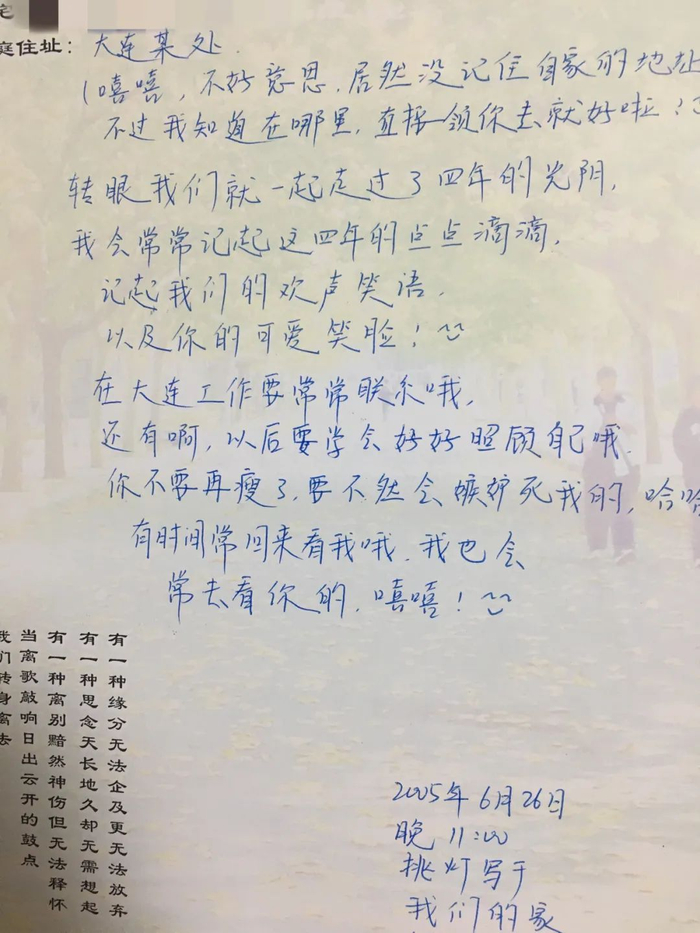 宅
庭住址：大连某处.
(嘻嘻，不好意思，居然没记住自家的地址
不过我知道在哪里，直接领你去就好啦！
转眼我们就一起走过了四年的光阴，
我会常常记起这四年的点点滴滴，
记起我们的欢声笑语，
以及你的可爱笑脸！
在大连工作要常常联系哦，
还有啊，以后要学会好好照顾自己哦，
你不要再瘦了，要不然会嫉妒死我的，哈哈
有时间常回来看我哦，我也会
常去看你的，嘻嘻！
有一种缘分无法企及更无法放弃
有一种思念天长地久却无需想起
有一种离别黯然神伤但无法释怀
当离歌敲响日出云开的鼓点
我们转身离去
2005年6月26日
晚11:00
挑灯写于
我们的家